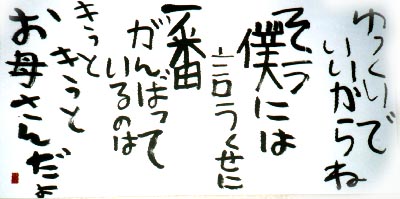 ゆっくりで
いいからね
そう
僕には
言うくせに
一番
がんばって
いるのは
きっと
きっと
お母さんだよ